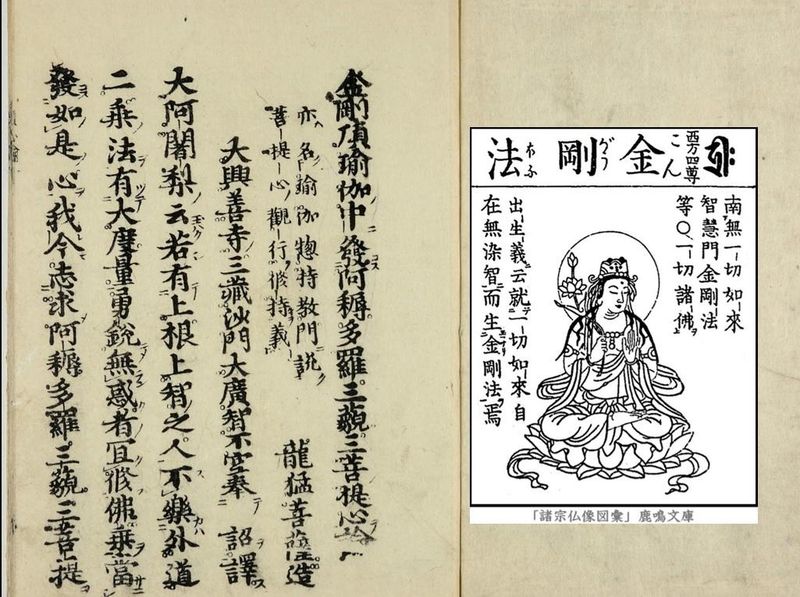 西方四尊
金剛法
こんがうほふ
南無一切如來
智慧門金剛法
等〇一切諸佛
出生義云就一切如來自
在無染智而生金剛法焉
「諸宗仏像図彙」鹿鳴文庫
金剛頂瑜伽中發阿耨多羅三藐三菩提心論
亦名瑜伽惣持教門説
菩提心觀行修持義
龍猛菩薩造
大興善寺三藏沙門大廣智不空奉 詔譯
大阿闍梨云若有上根上智之人不樂外道
二乘法有大度量勇鋭無惑者宜修佛乘當
發如是心我今志求阿耨多羅三藐三菩提